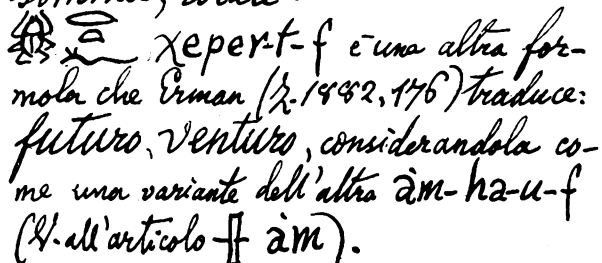 𓆣𓂋𓏏𓆑 χeper-t-f è una altra for-
mola che Erman (Z. 1882, 176) traduce:
futuro, venturo, considerandola co-
me una variante dell'altra àm-ha-u-f
(V. all'articolo àm).